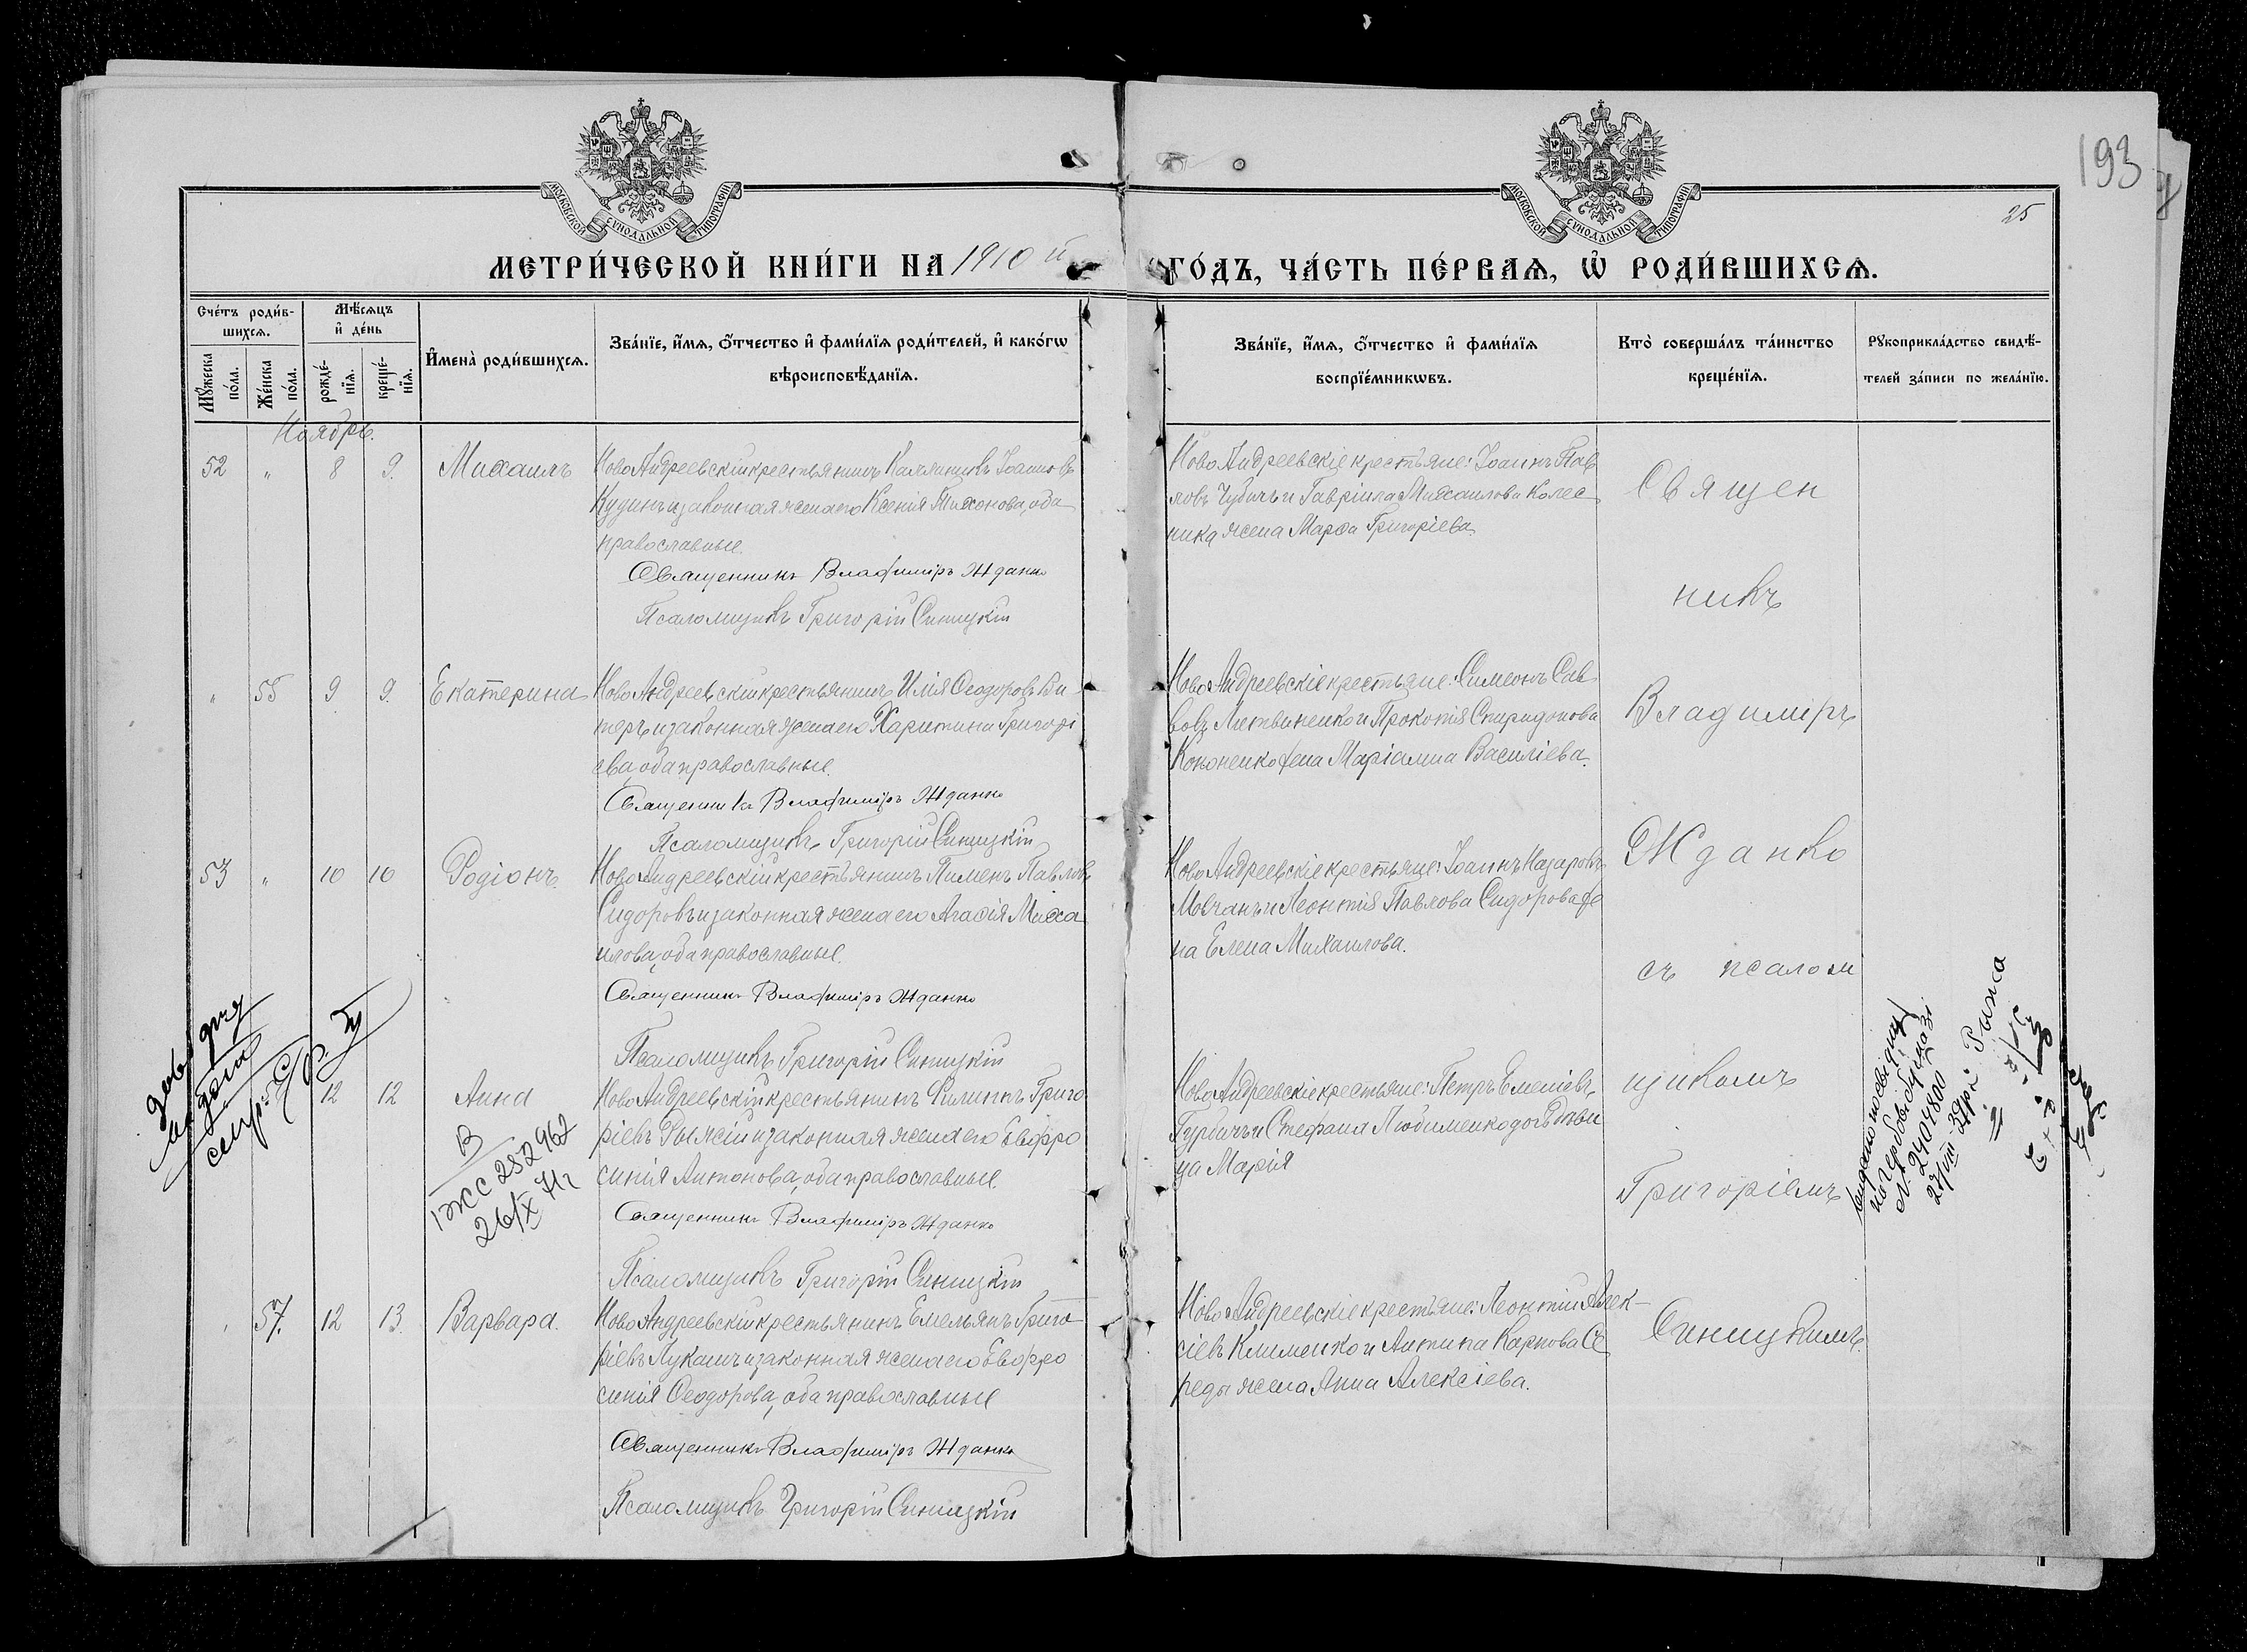 193
25
МОСКОВСКОЙ СѴНОДАЛЬНОЙ ТИПОГРАФІИ
МОСКОВСКОЙ СѴНОДАЛЬНОЙ ТИПОГРАФІИ
МЕТРИ́ЧЕСКОЙ КНИ́ГИ НА 1910 й ГО́ДЪ, ЧА́СТЬ ПЕ́РВАѦ, Ѽ РОДИ́ВШИХСѦ.
Сче́тъ роди́в-
шихсѧ.
Мꙋ́жеска
по́ла.
Же́нска
по́ла.
Мѣ́сѧцъ
и҆ де́нь
рожде́-
нїѧ.
креще́-
нїѧ.
И҆мена̀ роди́вшихсѧ.
Зва́нїе, и҆́мѧ, ѻ҆́тчество и҆ фами́лїѧ роди́телей, и҆ како́гѡ
вѣроисповѣ́данїѧ.
Зва́нїе, и҆́мѧ, ѻ҆́тчество и҆ фами́лїѧ
воспрїе́мникѡвъ.
Кто̀ соверша́лъ та́инство
креще́нїѧ.
Рꙋкоприкла́дство свидѣ́-
телей за́писи по жела́нїю.
Ноябрь.
52 " 8 9. Михаилъ
НовоАндреевскій крестьянинъ Каллиникъ Іоанновъ
Кудинъ и законная жена его Ксенія Тихонова, оба
православные.
Священникъ Владиміръ Жданко
Псаломщикъ Григорій Синицкій
НовоАндреевскіе крестьяне: Іоаннъ Пав
ловъ Чубичъ и Гавріила Михаилова Колес
ника жена Марѳа Григоріева.
" 55 9 9. Екатерина
НовоАндреевскій крестьянинъ Илія Ѳеодоровъ Ви
теръ и законная жена его Харитина Григорі
ева, оба православные.
Священникъ Владиміръ Жданко
Псаломщикъ Григорій Синицкій
НовоАндреевскіе крестьяне: Симеонъ Сав
вовъ Литвиненко и Прокопія Спиридонова
Кононенко жена Маріамна Василіева.
53 " 10 10 Родіонъ.
НовоАндреевскій крестьянинъ Пименъ Павловъ
Сидоровъ и законная жена его Агафія Миха
илова, оба православные.
Священникъ Владиміръ Жданко
Псаломщикъ Григорій Синицкій
НовоАндреевскіе крестьяне: Іоаннъ Назаровъ
Мовчанъ и Леонтія Павлова Сидорова же
на Елена Михаилова.
12 12 Анна
В
ІЭЖС 252962
26/X 71г
НовоАндреевскій крестьянинъ Филиппъ Григо
ріевъ Рыжій и законная жена его Евфро
синія Антонова, оба православные.
Священникъ Владиміръ Жданко
Псаломщикъ Григорій Синицкій
НовоАндреевскіе крестьяне: Петръ Емеліевъ
Гурбичъ и Стефана Любименко дочь дѣви
ца Марія
№ 2404800
27/VIII 39р.
Рыжа
57. 12 13. Варвара.
НовоАндреевскій крестьянинъ Емельянъ Григо
ріевъ Лукашъ и законная жена его Евфро
синія Ѳеодорова, оба православные
Священникъ Владиміръ Жданко
Псаломщикъ Григорій Синицкій
НовоАндреевскіе крестьяне: Леонтій Алек-
сіевъ Клименко и Антипа Карпова Се
реды жена Анна Алексіева.
Священ
никъ
Владиміръ
Жданко
съ псалом
щикомъ
Григоріемъ
Синицкимъ